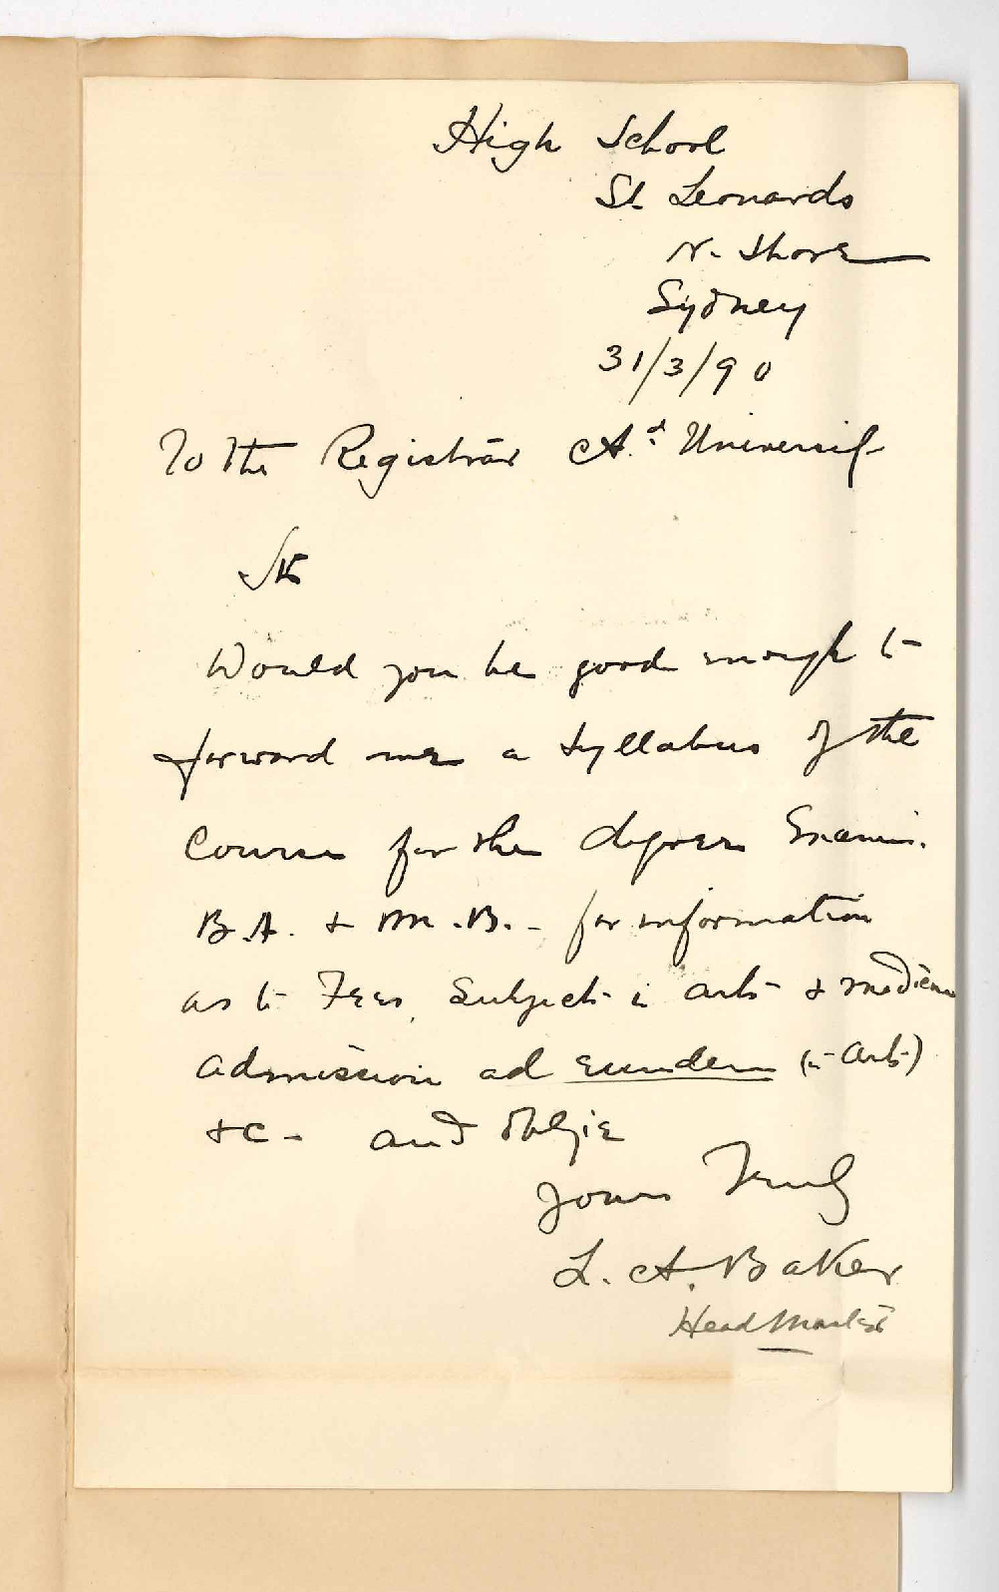 High School
St. Leonards
N. Shore
Sydney
31/3/90
To the Registrar Ad. University
Sir
Would you be good enough to
forward me a Syllabus of the
Course for the degree Examin.
B.A. & M.B. - for information
as to Fees, Subjects in arts & medicine
admission ad eundem (in Arts)
&c - and oblige
Yours Truly
L. A. Baker
Head Master